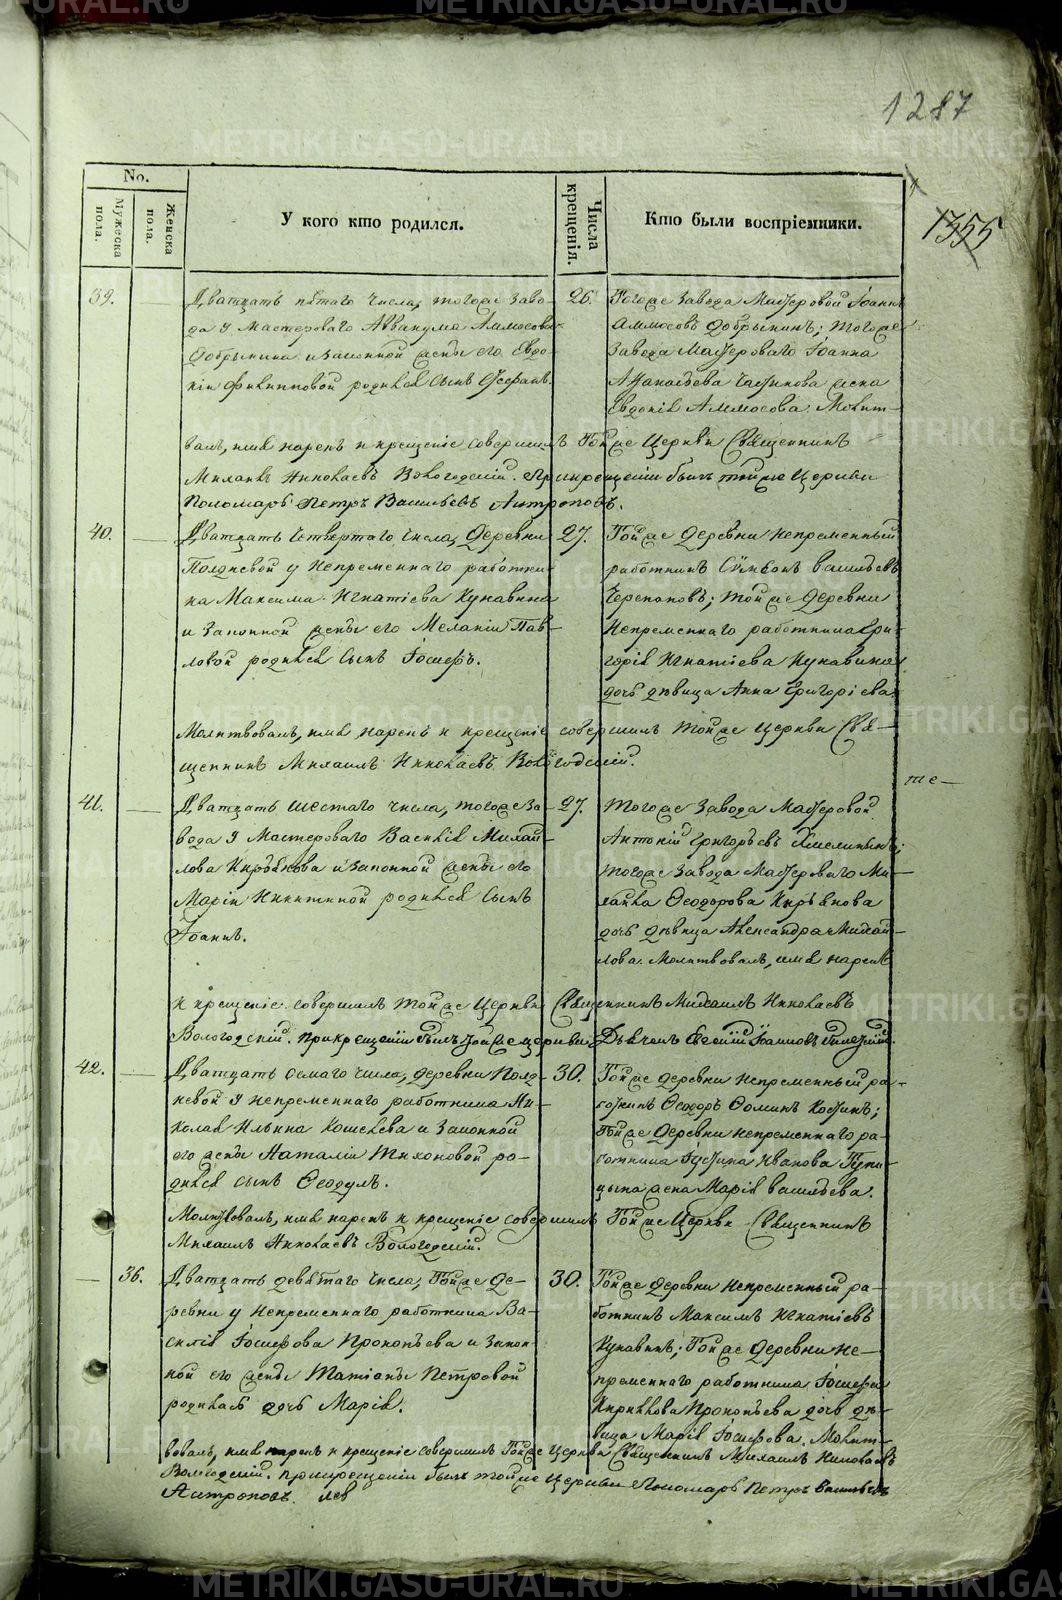 1287
1355
No.
Мужеска пола.
Женска пола.
У кого кто родился.
Числа крещенія.
Кто были воспріемники.
39.
Дватцать пятаго числа, тогоже заво-
да у Мастероваго Аввакума Аммосова
Добрынина и законной жены его Евдо-
кіи Филипповой родился сынъ Стефанъ.
26.
Тогоже завода Мастеровой Іоаннъ
Аммосовъ Добрынинъ; тогоже
завода Мастероваго Іоанна
жена
Евдокія Аммосова. Молит-
валъ, имя нарекъ и крещеніе совершилъ Тойже Церкви Священникъ
Михаилъ Николаевъ Вологодскій. При крещеніи былъ тойже Церкви
Пономарь Петръ Васильевъ Антроповъ.
40.
Дватцать четвертаго числа, Деревни
Полдневой у непременнаго работни-
ка Максима Игнатіева Кунавина
и законной жены его Меланіи Пав-
ловой родился сынъ Іосифъ.
27.
Тойже деревни непременный
работникъ Сумеонъ Васильевъ
Черепановъ; тойже деревни
непременнаго работника Гри-
горія Игнатіева Кунавина
дочь девица Анна Григоріева.
Молитвовалъ, имя нарекъ и крещеніе совершилъ тойже Церкви Свя-
щенникъ Михаилъ Николаевъ Вологодскій.
те—
41.
Дватцать шестаго числа, тогоже за-
вода у Мастероваго Василія Михай-
лова Кирьянова и законной жены его
Маріи Никитиной родился сынъ
Іоаннъ.
27.
Тогоже завода Мастеровой
Антоній Григорьевъ Хмелининъ;
тогоже завода Мастероваго Ми-
хаила Ѳеодорова Кирьянова
дочь девица Александра Михай-
лова. Молитвовалъ, имя нарекъ
и крещеніе совершилъ тойже Церкви Священникъ Михаилъ Николаевъ
Вологодскій. При крещеніи былъ тойже церкви Дьячекъ Евгеній Іоанновъ
42.
Дватцать осмаго числа, деревни Полд-
невой у непременнаго работника Ни-
колая Ильина Кошелева и законной
его жены Наталіи Тихоновой ро-
дился сынъ Ѳеодулъ.
30.
Тойже деревни непременный ра-
ботникъ Ѳеодоръ Ѳоминъ Костинъ;
Тойже деревни непременнаго ра-
ботника Іустина Иванова
жена Марія Васильева.
Молитвовалъ, имя нарекъ и крещеніе совершилъ Тойже Церкви Священникъ
Михаилъ Николаевъ Вологодскій.
36.
Дватцать девятаго числа, Тойже де-
ревни у непременнаго работника Ва-
силія Іосифова Прокопьева и закон-
ной его жены Татіаны Петровой
родилась дочь Марія.
30.
Тойже деревни непременный ра-
ботникъ Максимъ Игнатіевъ
Кунавинъ; Тойже деревни не-
пременнаго работника Іосифа
Кириллова Прокопьева дочь де-
вица Марія Іосифова. Молит-
вовалъ, имя нарекъ и крещеніе совершилъ Тойже Церкви Священникъ Михаилъ Николаевъ
Вологодскій. При крещеніи былъ тойже Церкви Пономарь Петръ Васильевъ
Антроповъ.
METRIKI.GASO-URAL.RU